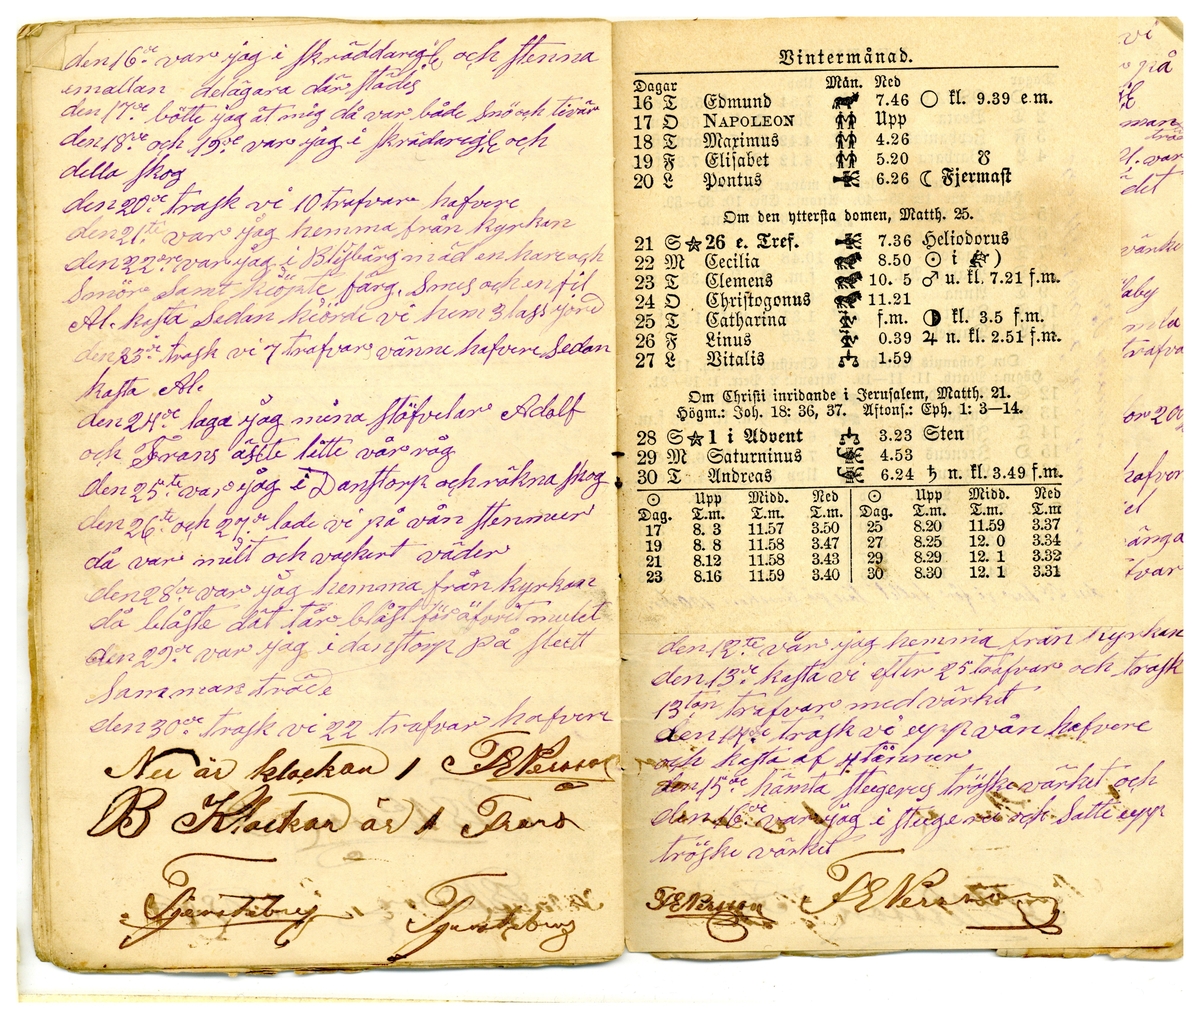 den 16de var jag i skräddareg och stenna
emallan delägara där städes
den 17de bötte jag åt mig då var både snö och tivär
den 18de och 19de var jag i skrädareg och
della skog
den 20de trask vi 10 trafvar hafvere
den 21te var jag hemma från kyrkan
den 22dre var jag i Blisbärg mäd en hare och
Smör samt kiöpte färg. Smes och en fil
Al. kasta Sedan kiörde vi hem 3 lass jord
den 23de trask vi 7 trafvar vänne hafvere Sedan
kasta Al.
den 24de laga jag mina stöfvelar Adolf
och Frans äste lette vår råg
den 25te var jag i Danstorp och räkna skog
den 26te och 27de lade vi på vån stenmur
då var mült och vackert väder
den 28de var jag hemma från kyrkan
då blåste dåt tår blåst för äfvrit mulet
den 29de var jag i danstorp på slett
Samman träde
den 30de trask vi 22 trafvar hafvere
Nu är klockan 1 F E Persson
B Klockan är 1 Frans
Tjenstebrej Tjensteberg
Vintermånad.
Dagar Mån. Ned
16 T Edmund 7.46 ○ kl. 9.39 e.m.
17 O NAPOLEON Upp
18 T Maximus 4.26
19 F Elisabet 5.20 ☋
20 L Pontus 6.26 ☾ Fjermast
Om den yttersta domen, Matth. 25.
21 S ★ 26 e. Tref. 7.36 Heliodorus
22 M Cecilia 8.50 ☉ i ♐)
23 T Clemens 10. 5 ♂ u. kl. 7.21 f.m.
24 O Christogonus 11.21
25 T Catharina f.m. ◑ kl. 3.5 f.m.
26 F Linus 0.39 ♃ n. kl. 2.51 f.m.
27 L Vitalis 1.59
Om Christi inridande i Jerusalem, Matth. 21.
Högm.: Joh. 18: 36, 37. Aftons.: Eph. 1: 3—14.
28 S ★ 1 i Advent 3.23 Sten
29 M Saturninus 4.53
30 T Andreas 6.24 ♄ n. kl. 3.49 f.m.
☉ Upp Midd. Ned ☉ Upp Midd. Ned
Dag. T.m. T.m. T.m. Dag. T.m. T.m. T.m
17 8. 3 11.57 3.50 25 8.20 11.59 3.37
19 8. 8 11.58 3.47 27 8.25 12. 0 3.34
21 8.12 11.58 3.43 29 8.29 12. 1 3.32
23 8.16 11.59 3.40 30 8.30 12. 1 3.31
den 12te vår jag hemma från kyrkan
den 13de kasta vi efter 25 trafvar och trask
13ton trafvar med värket
den 14de trask vi upp vån hafvere
och kasta af 4 tänner
den 15de hämta stugeres tröskevärket och
den 16de var jag i stugerea och Satte upp
tröske värket
F E Persson F E Persson
vi
på
man
var
det
vänne
trafva
hafver
ånga
tvar